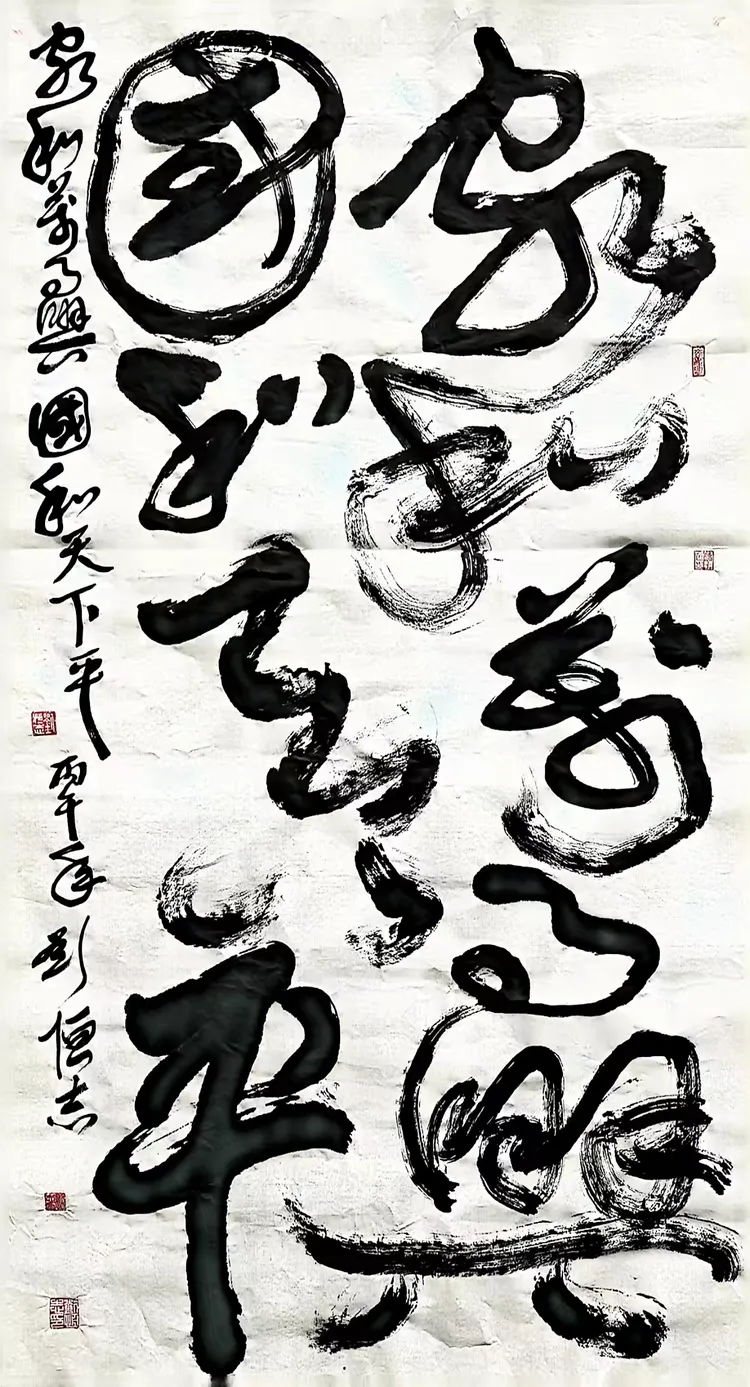 家和萬事興
國和天下平
家和萬事興國和天下平
丙午年彭恒志